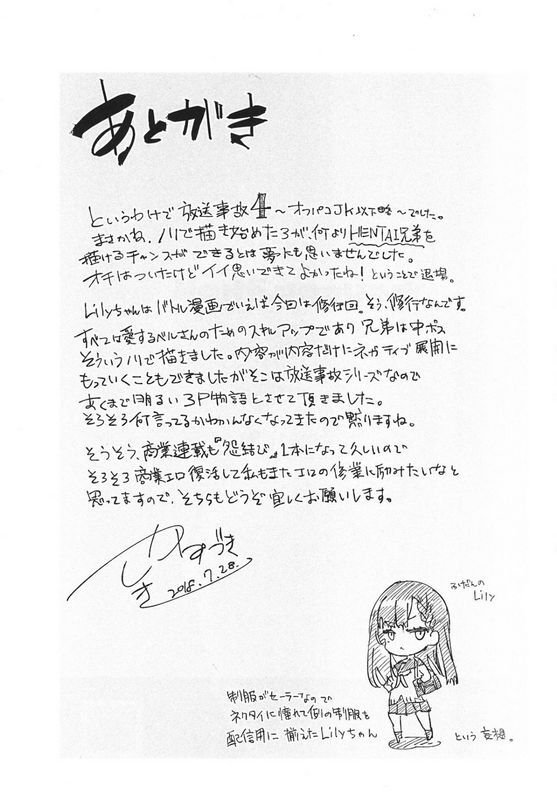 あとがき
というわけで放送事故4〜オフパコJK以下略〜でした。
まさかね、ノリで描き始めたろが、何よりHENTAI兄弟を
描けるチャンスができるとは夢にも思いませんでした。
オチはついたけどイイ思いできてよかったね！ということで退場。
Lilyちゃんはバトル漫画でいえば今回は修行回。そう、修行なんです。
すべては愛するベルさんのためのスキルアップであり兄弟は中ボス
そういうノリで描きました。内容が内容だけにネガティブ展開に
もっていくこともできましたがそこは放送事故シリーズなので
あくまで明るい3P物語とさせて頂きました。
そろそろ何言ってるかわかんなくなってきたので黙りますね。
そうそう、商業連載も『怨結び』1本になって久しいので
そろそろ商業エロ復活して私もまたエロの修業に励みたいなと
思ってますので、そちらもどうぞ宜しくお願いします。
かずづき
しき
2018.7.28.
ふだんの
Lily
制服がセーラーなので
ネクタイに憧れて例の制服を
配信用に揃えたLilyちゃん
という妄想。